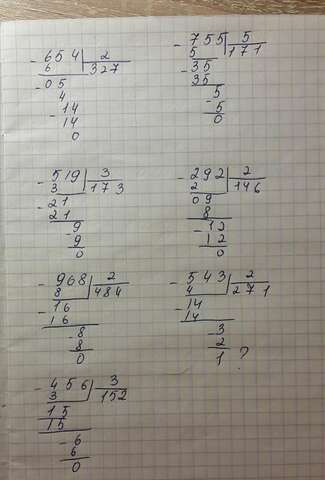 - 654 | 2
6 327
- 05
4
- 14
14
0
- 755 | 5
5 171
- 35
35
- 5
5
0
- 519 | 3
3 173
- 21
21
- 9
9
0
- 292 | 2
2 146
09
8
- 12
12
0
- 968 | 2
8 484
- 16
16
- 8
8
0
- 543 | 2
4 271
- 14
14
- 3
2
1 ?
- 456 | 3
3 152
15
15
- 6
6
0